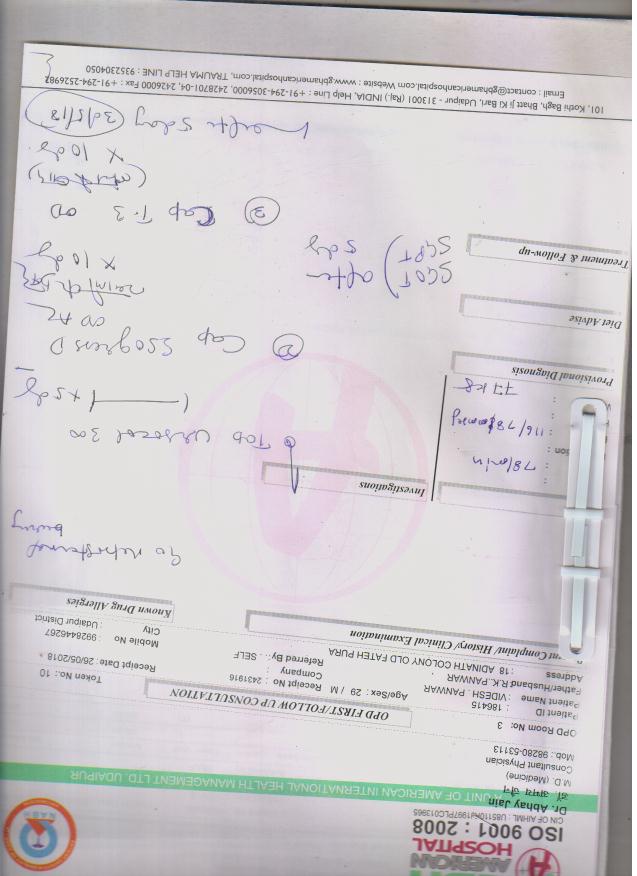 AMERICAN
HOSPITAL
ISO 9001 : 2008
CIN OF AIHML : U85110RJ1997PLC013965
A UNIT OF AMERICAN INTERNATIONAL HEALTH MANAGEMENT LTD. UDAIPUR
Dr. Abhay Jain
डॉ. अभय जैन
M.D. (Medicine)
Consultant Physician
Mob.: 98280-53113
OPD Room No: 3
OPD FIRST/FOLLOW UP CONSULTATION
Token No.: 10
Patient ID : 186415
Patient Name : VIDESH . PANWAR
Age/Sex: 29 / M
Receipt No : 2431916
Receipt Date : 26/05/2018
Father/Husband: R.K. PANWAR
Company :
Address : 18 ADINATH COLONY OLD FATEH PURA
Referred By: . SELF
Mobile No : 9928446267
City : Udaipur District
Complaint/ History/ Clinical Examination
Known Drug Allergies
retrosternal
burning
Investigations
78/min
116/78
77 kg
Tab Ursocol 300
x 5 day
Provisional Diagnosis
② Cap D
OD AC
x 10 day
Diet Advise
SGOT
SGPT
after
5 day
Treatment & Follow-up
③ Cap T-3 OD
x 10 day
after 5 day
101, Kothi Bagh, Bhatt Ji Ki Bari, Udaipur - 313001 (Raj.) INDIA, Help Line : +91-294-3056000, 2428701-04, 2426000 Fax : +91-294-2526982
Email : contact@gbhamericanhospital.com Website : www.gbhamericanhospital.com, TRAUMA HELP LINE : 9352304050